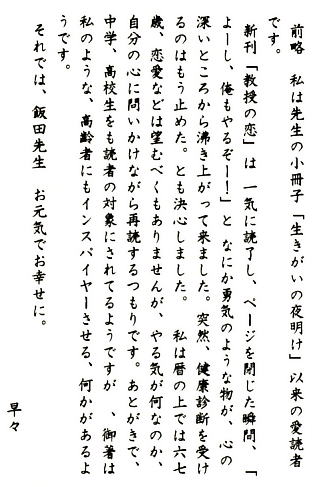 前略　私は先生の小冊子「生きがいの夜明け」以来の愛読者
です。
新刊「教授の恋」は 一気に読了し、ページを閉じた瞬間、「
よーし、俺もやるぞー！」と なにか勇気のような物が、心の
深いところから沸き上がって来ました。突然、健康診断を受け
るのはもう止めた。とも決心しました。　私は暦の上では六七
歳、恋愛などは望むべくもありませんが、やる気が何なのか、
自分の心に問いかけながら再読するつもりです。あとがきで、
中学、高校生をも読者の対象にされてるようですが 、御著は
私のような、高齢者にもインスパイヤーさせる、何かがあるよ
うです。
それでは、飯田先生　お元気でお幸せに。
早々